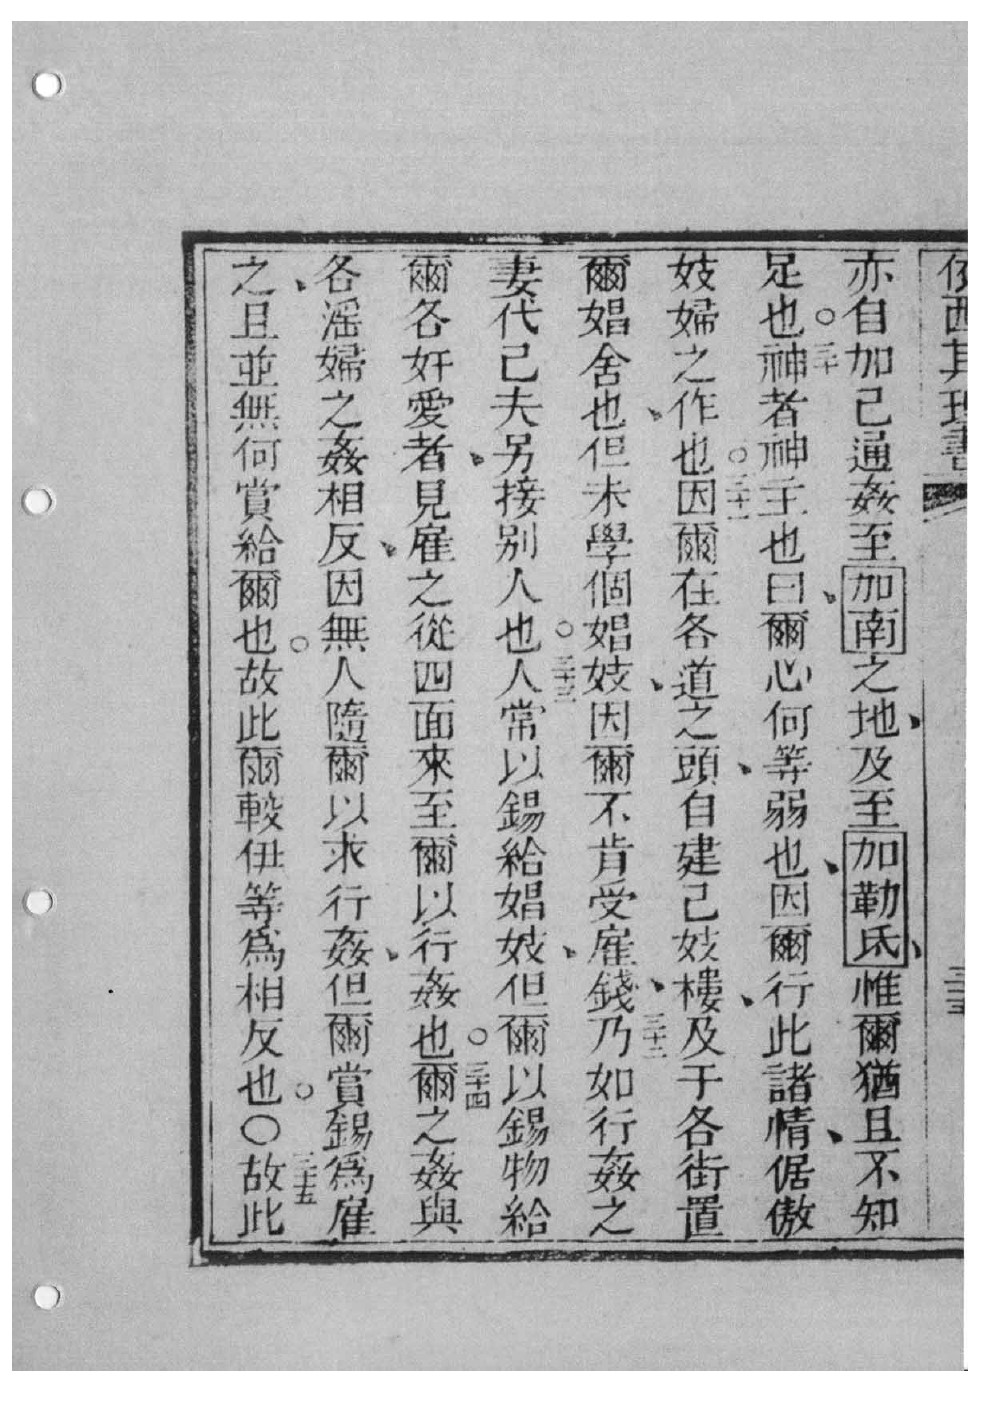 依西其理書
亦自加己通姦至加南之地、及至加勒氐、惟爾猶且不知
足也。三十神者神主也曰、爾心何等弱也、因爾行此諸情、倨傲
妓婦之作也。三十一因爾在各道之頭、自建己妓樓、及于各街置
爾娼舍也、但未學個娼妓、因爾不肯受雇錢、三十二乃如行姦之
妻代己夫、另接別人也。三十三人常以錫給娼妓、但爾以錫物給
爾各奸愛者、見雇之從四面來至爾以行姦也。三十四爾之姦與
各淫婦之姦相反、因無人隨爾以求行姦、但爾賞錫為雇
之、且並無何賞給爾也。故此爾較伊等為相反也。〇三十五故此